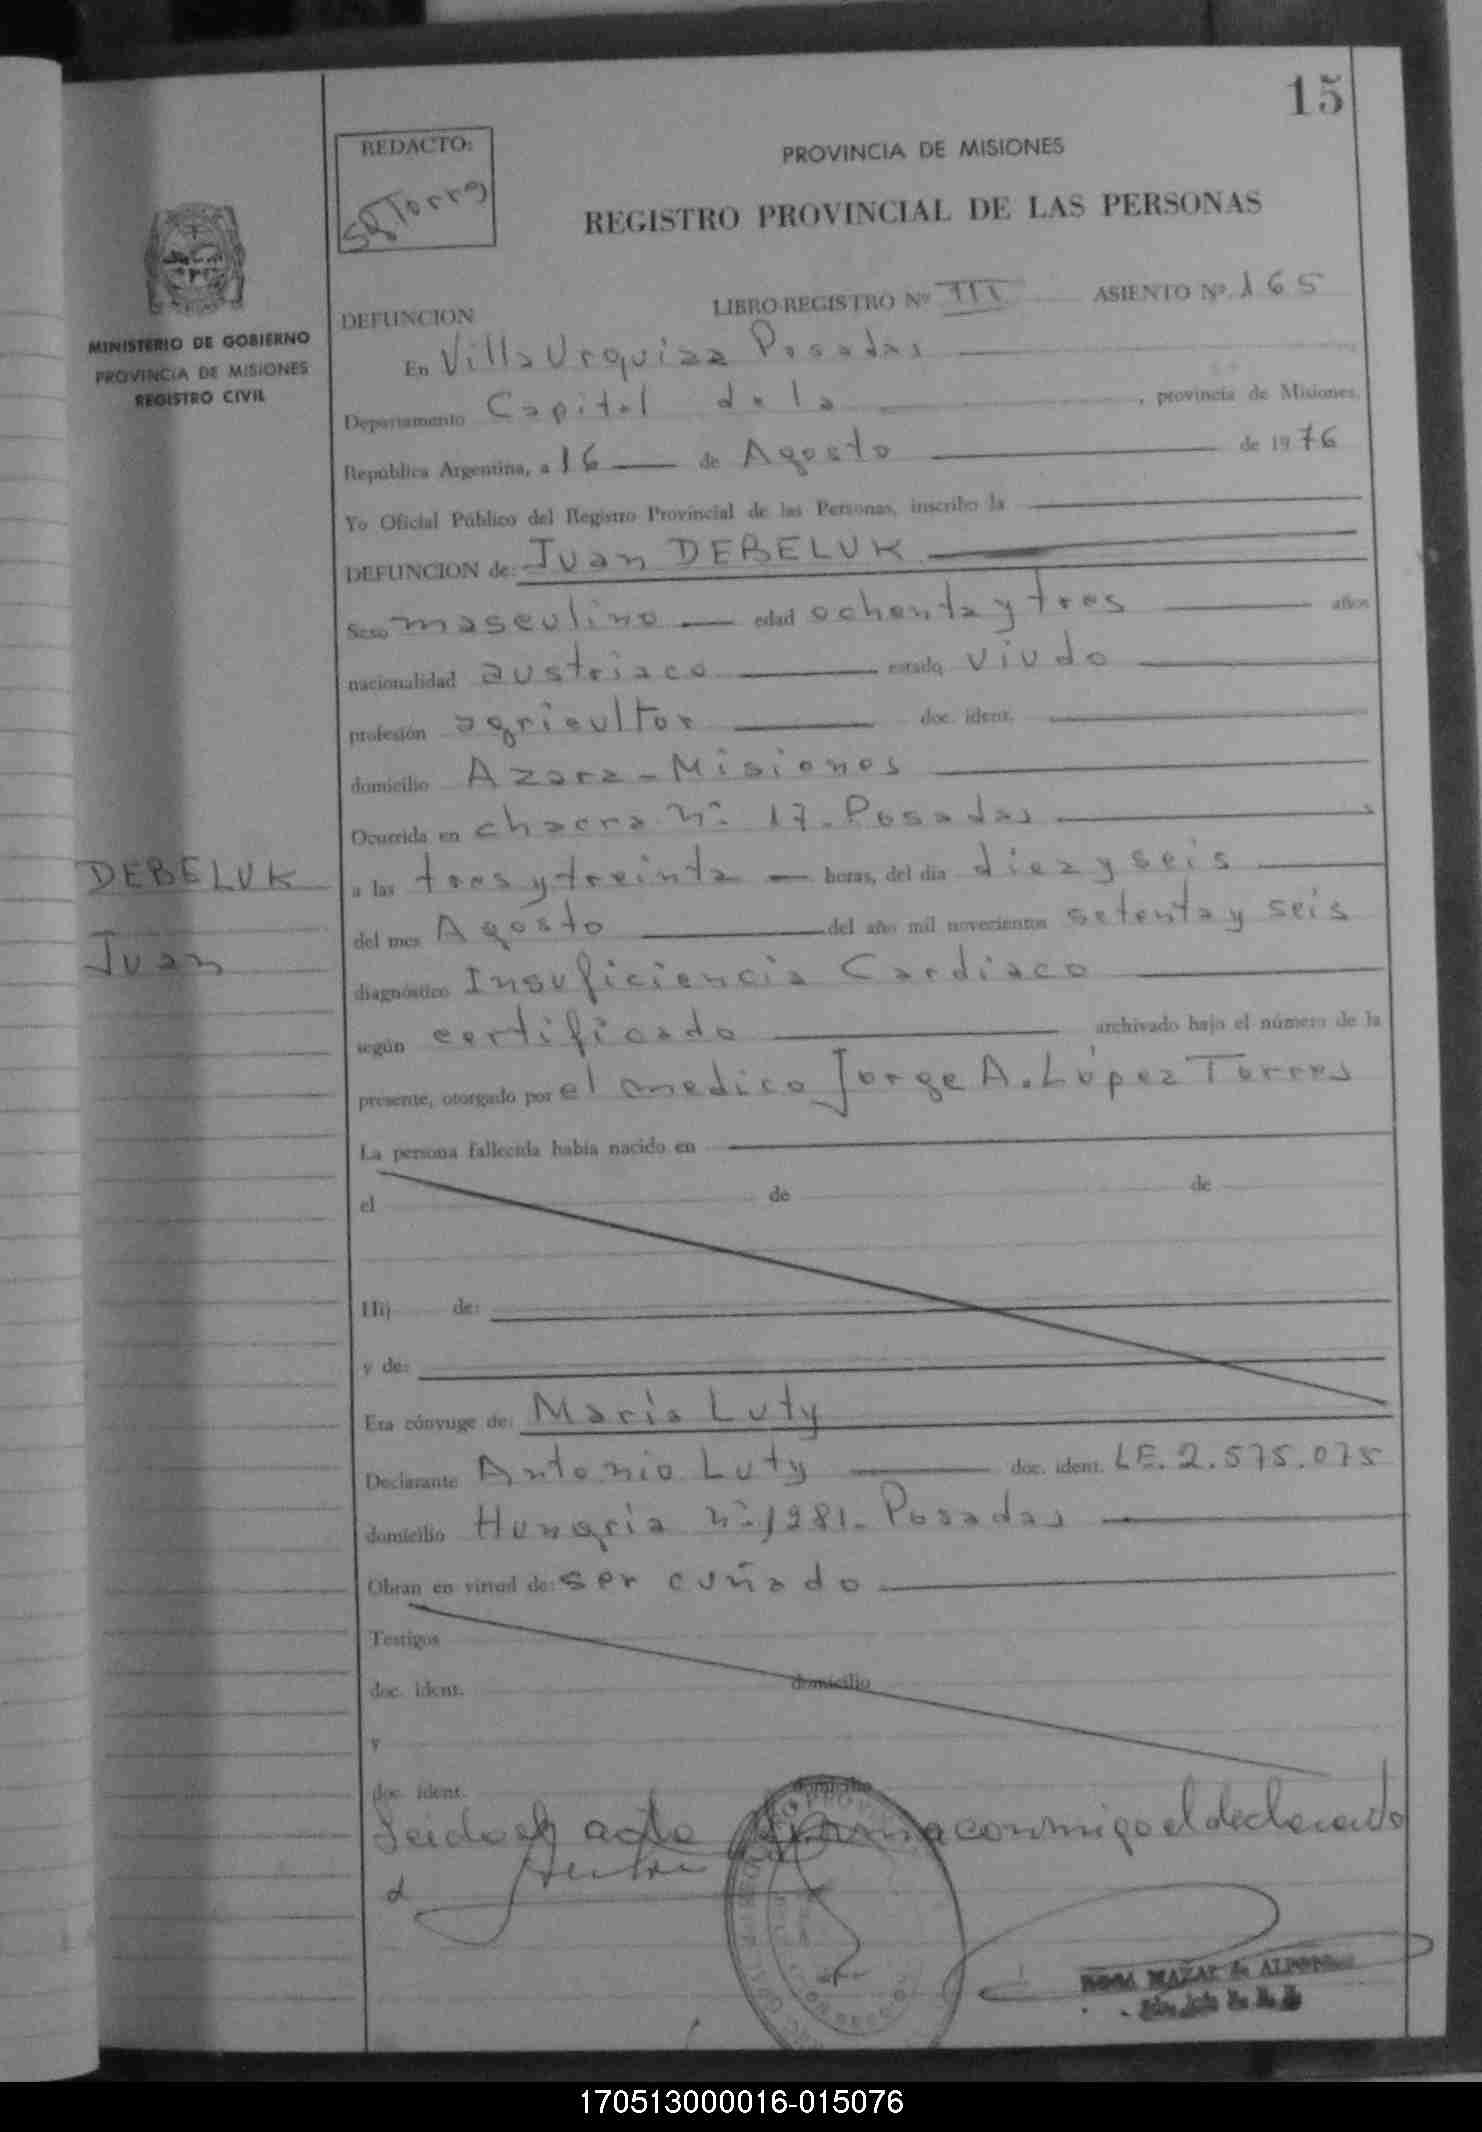 15
REDACTO:
PROVINCIA DE MISIONES
REGISTRO PROVINCIAL DE LAS PERSONAS
MINISTERIO DE GOBIERNO
PROVINCIA DE MISIONES
REGISTRO CIVIL
DEFUNCION LIBRO-REGISTRO Nº III ASIENTO Nº 165
En Villa Urquiza Posadas
Departamento Capital de la , provincia de Misiones,
República Argentina, a 16 de Agosto de 1976
Yo Oficial Público del Registro Provincial de las Personas, inscribo la
DEFUNCION de: Juan DEBELUK
Sexo masculino edad ochenta y tres años
nacionalidad austriaco estado viudo
profesión agricultor doc. ident.
domicilio Azara - Misiones
Ocurrida en chacra Nº 17 - Posadas
DEBELUK
Juan
a las tres y treinta horas, del día diez y seis
del mes Agosto del año mil novecientos setenta y seis
diagnóstico Insuficiencia Cardiaco
según certificado archivado bajo el número de la
presente, otorgado por el medico Jorge A. López Torres
La persona fallecida había nacido en
el de de
Hij de:
y de:
Era cónyuge de: María Luty
Declarante Antonio Luty doc. ident. LE. 2.575.075
domicilio Hungria nº 1281 - Posadas
Obran en virtud de: ser cuñado
Testigos
doc. ident. domicilio
y
doc. ident. domicilio
Leido el acta firma conmigo el declarante
170513000016-015076